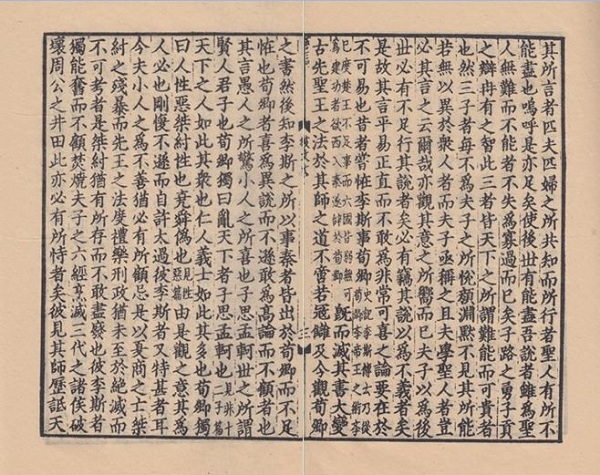 其所言者匹夫匹婦之所共知而所行者聖人有所不
能盡也嗚呼是亦足矣使後世有能盡吾說者雖為聖
人無難而不能者不失為寡過而已矣子路之勇子貢
之辯冉有之智此三者皆天下之所謂難能而可貴者
也然三子者每不為夫子之所悅顏淵默不見其所能
若無以異於衆人者而夫子亟稱之且夫學聖人者豈
必其言之云爾哉亦觀其意之所嚮而已夫子以為後
世必有不足行其說者矣必有竊其說以為不義者矣
是故其言平易正直而不敢為非常可喜之論要在於
不可易也昔者常怪李斯事荀卿史記李斯傳乃從荀卿帝王之術
度楚王不足事而六國皆弱無可為建功者欲西入秦遂辭於荀卿既而滅其書大變
古先聖王之法於其師之道不啻若冦讎及今觀荀卿
之書然後知李斯之所以事秦者皆出於荀卿而不足
怪也荀卿者喜為異說而不遜敢為高論而不顧者也
其言愚人之所驚小人之所喜也子思孟軻世之所謂
賢人君子也荀卿獨曰亂天下者子思孟軻也見非十二子篇
天下之人如此其衆也仁人義士如此其多也荀卿獨
曰人性惡桀紂性也堯舜偽也見性惡篇由是觀之意其為
人必也剛愎不遜而自許太過彼李斯者又特甚者耳
今夫小人之為不善猶必有所顧忌是以夏商之亡桀
紂之殘暴而先王之法度禮樂刑政猶未至於絕滅而
不可考者是桀紂猶有所存而不敢盡廢也彼李斯者
獨能奮而不顧焚燒夫子之六經烹滅三代之諸侯破
壞周公之井田此亦必有所恃者矣彼見其師歷詆天